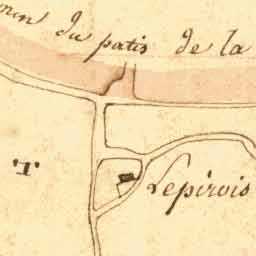 min du patis de la
T
Lepirois